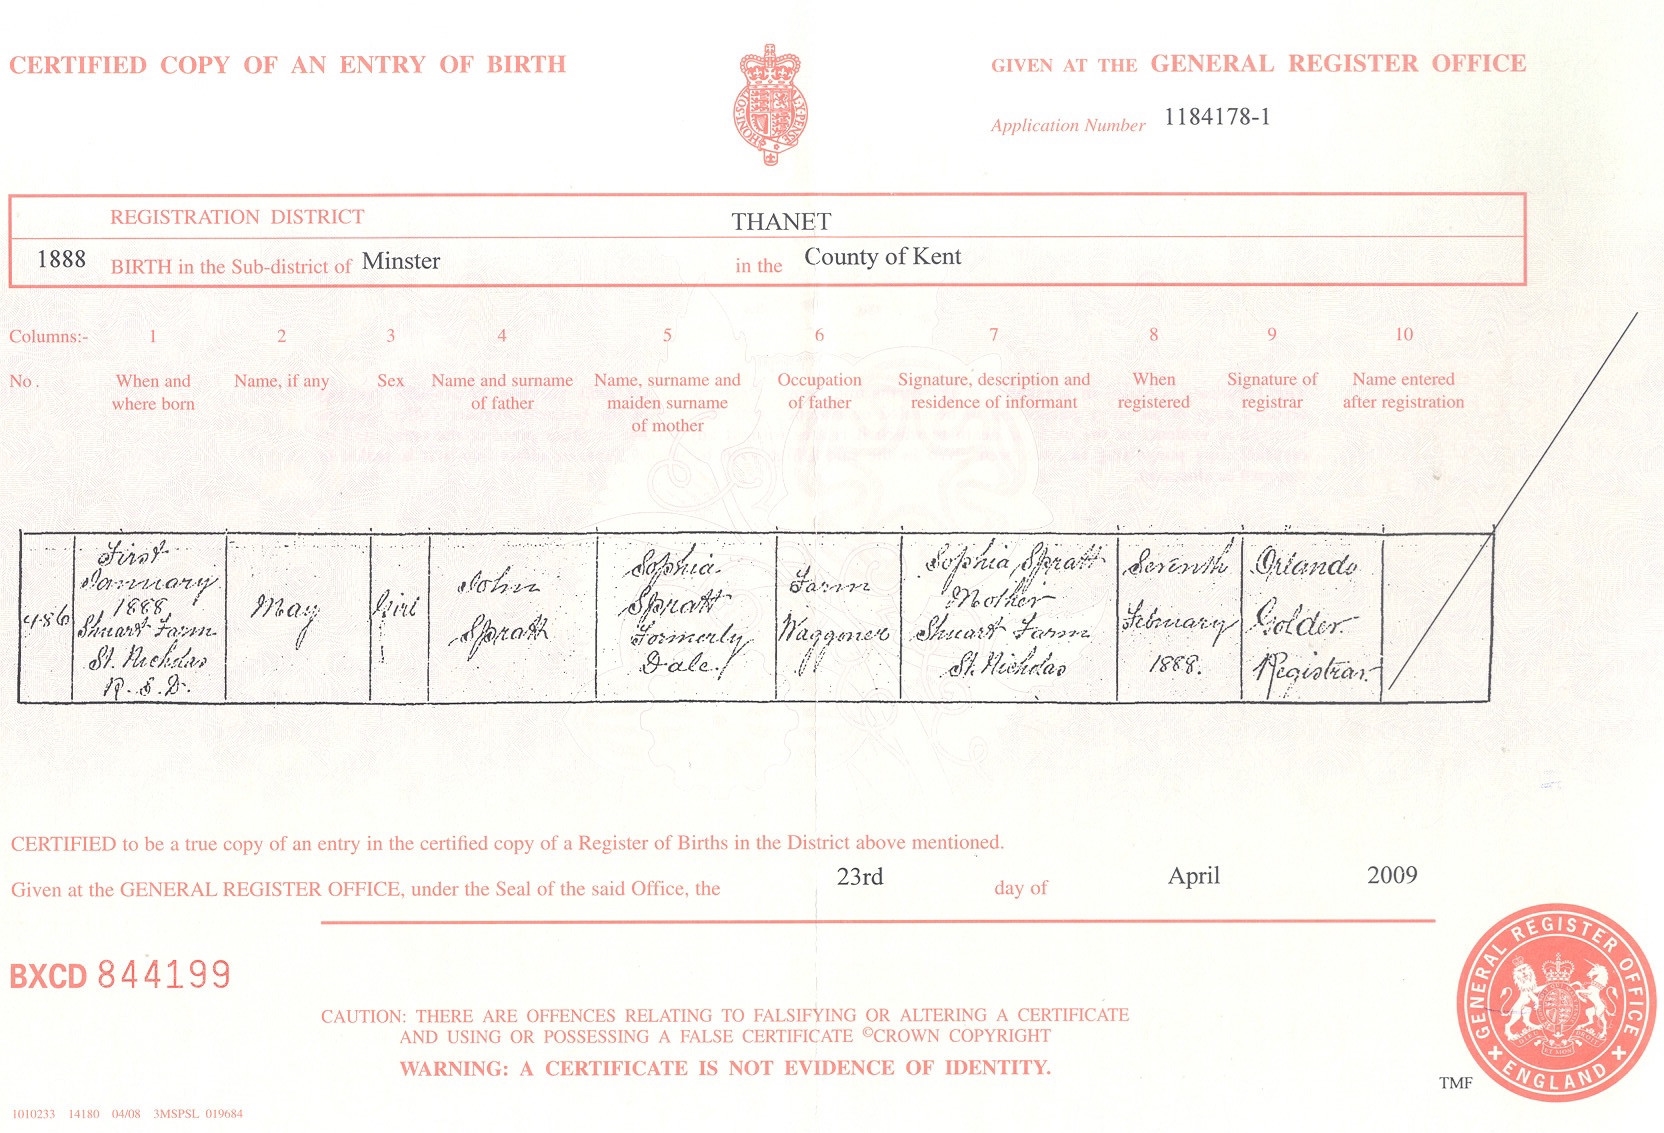 CERTIFIED COPY OF AN ENTRY OF BIRTH
GIVEN AT THE GENERAL REGISTER OFFICE
Application Number 1184178-1
REGISTRATION DISTRICT THANET
1888 BIRTH in the Sub-district of Minster in the County of Kent
Columns:- 1 2 3 4 5 6 7 8 9 10
No. When and where born
Name, if any
Sex
Name and surname of father
Name, surname and maiden surname of mother
Occupation of father
Signature, description and residence of informant
When registered
Signature of registrar
Name entered after registration
486
First
January
1888
Shuart Farm
St. Nicholas
R. S. D.
May
Girl
John
Spratt
Sophia
Spratt
Formerly
Dale
Farm
Waggoner
Sophia Spratt
Mother
Shuart Farm
St. Nicholas
Seventh
February
1888.
Orlando
Golder.
Registrar.
CERTIFIED to be a true copy of an entry in the certified copy of a Register of Births in the District above mentioned.
Given at the GENERAL REGISTER OFFICE, under the Seal of the said Office, the 23rd day of April 2009
BXCD 844199
CAUTION: THERE ARE OFFENCES RELATING TO FALSIFYING OR ALTERING A CERTIFICATE
AND USING OR POSSESSING A FALSE CERTIFICATE ©CROWN COPYRIGHT
WARNING: A CERTIFICATE IS NOT EVIDENCE OF IDENTITY.
GENERAL REGISTER OFFICE
ENGLAND
TMF
1010233 14180 04/08 3MSPSL 019684